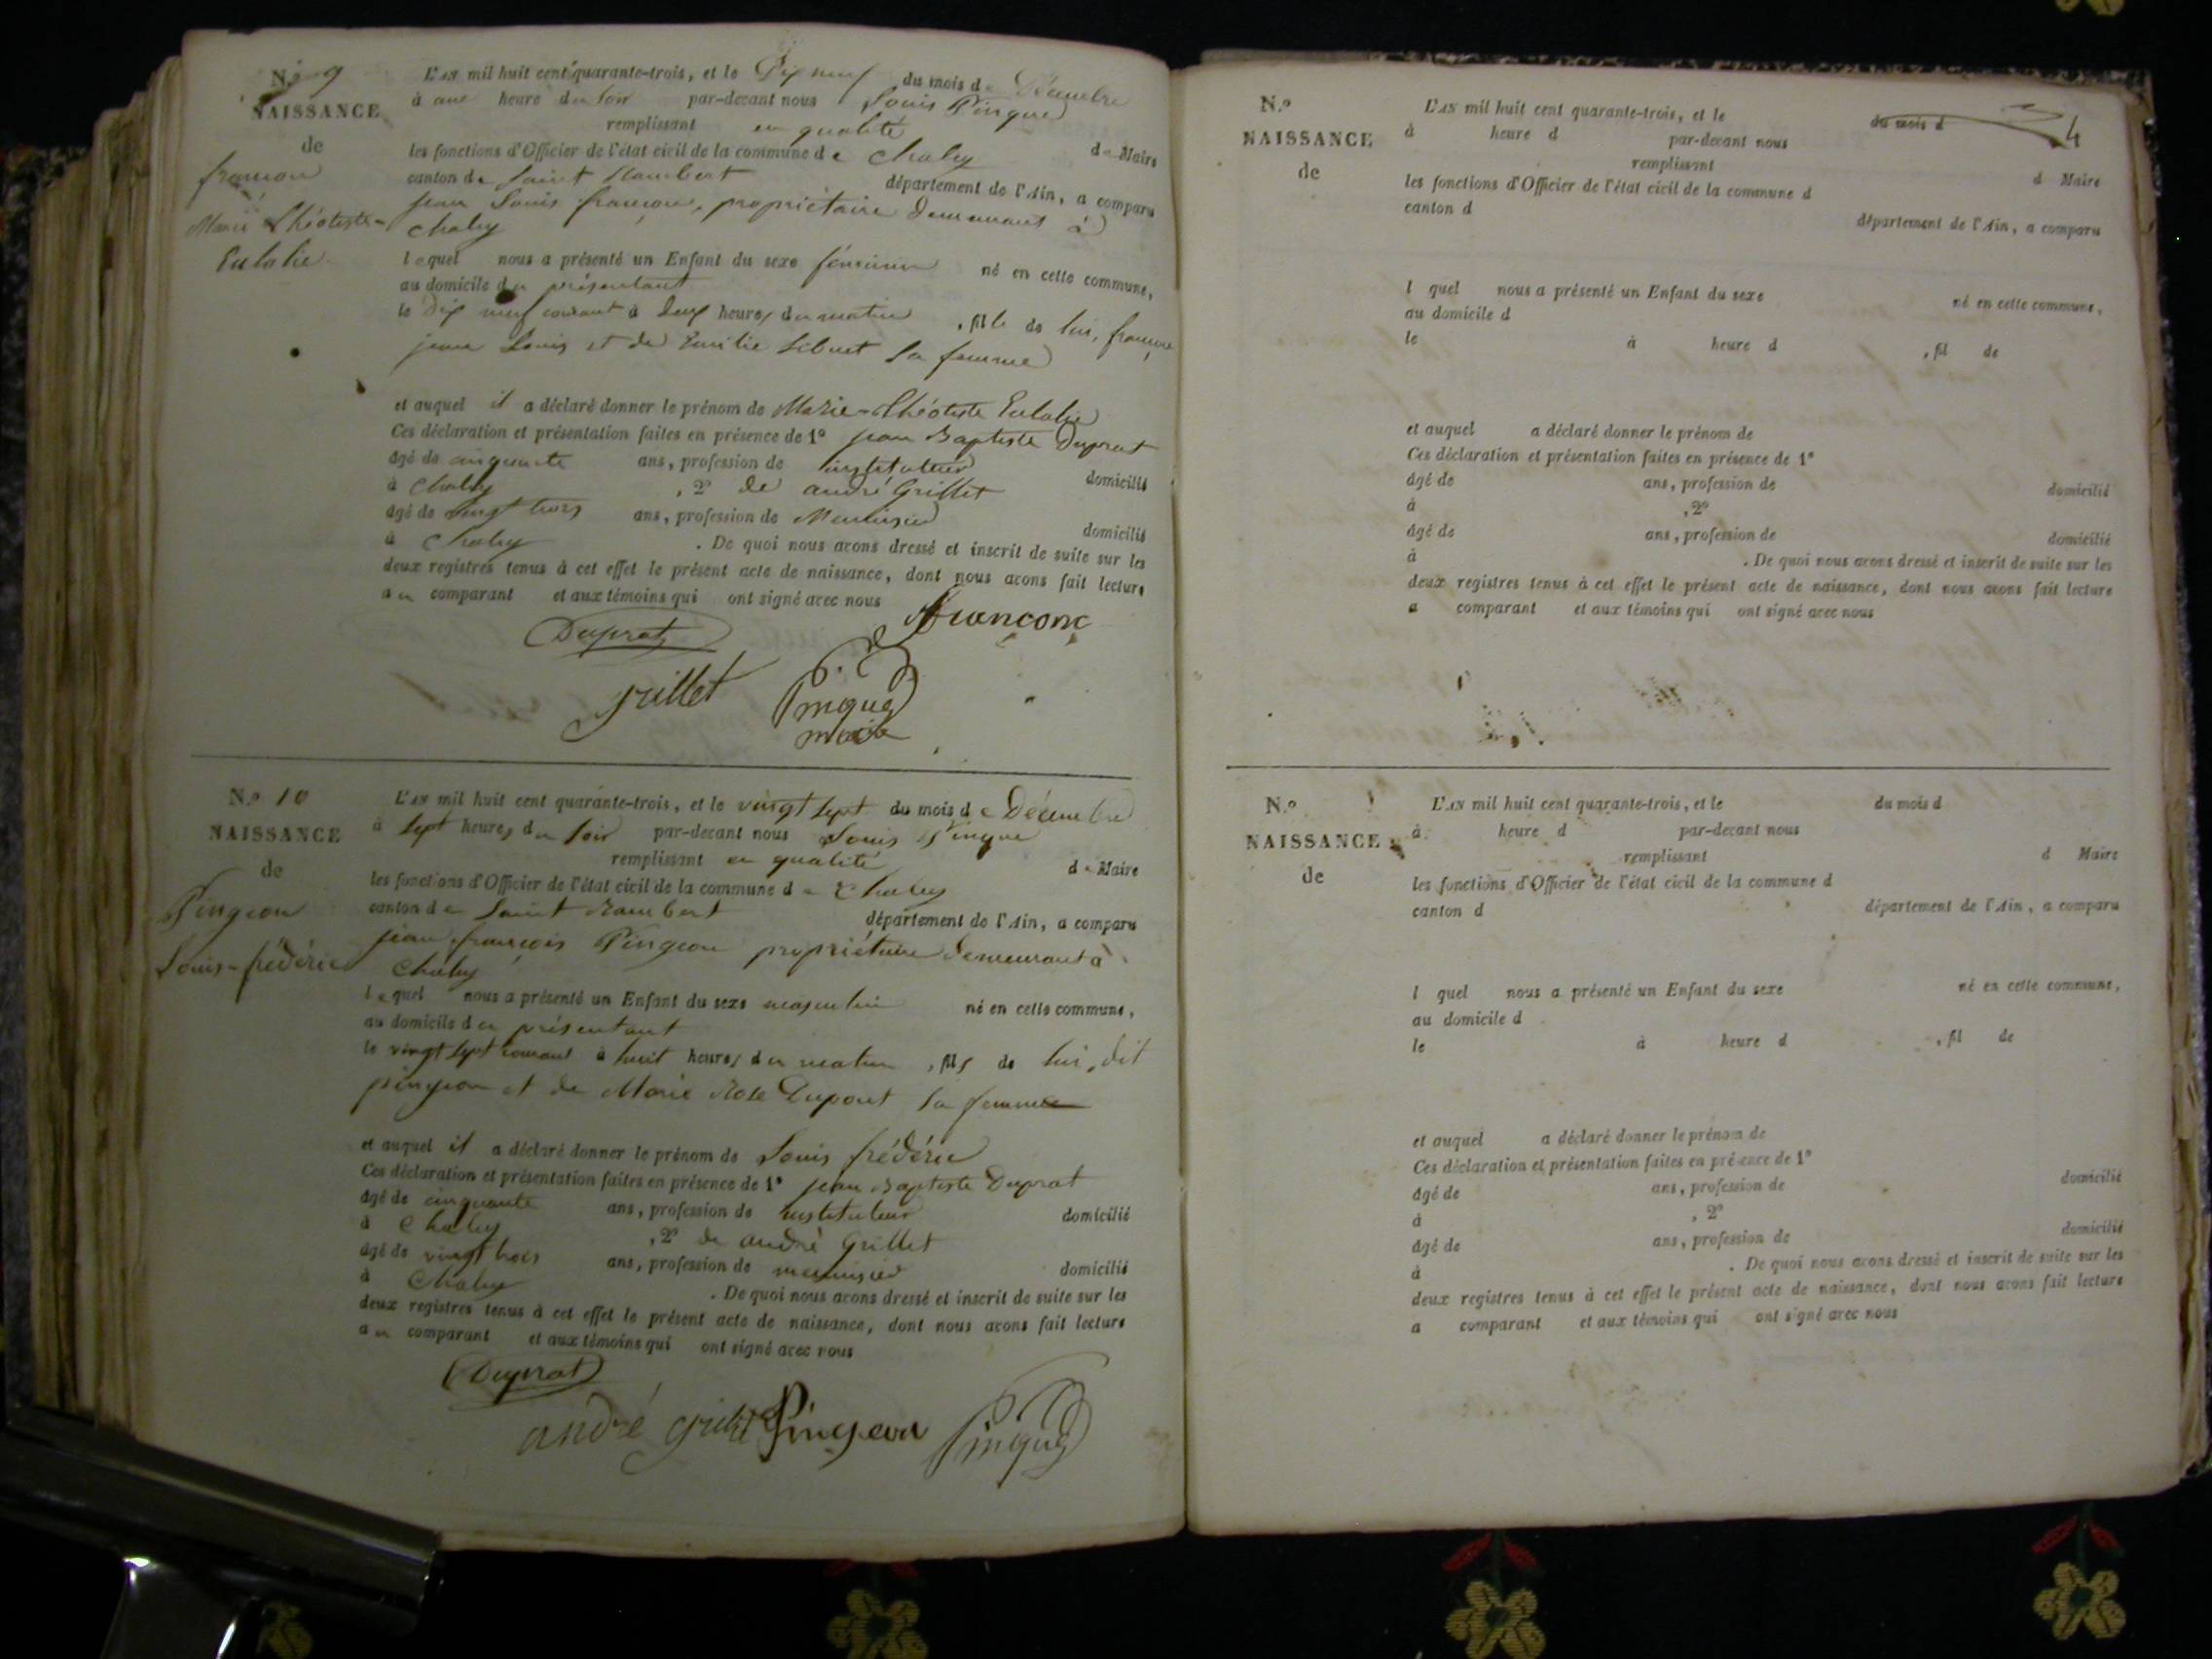 N.o 9
NAISSANCE
de
françon
Marie Théotiste
Eulalie
L'AN mil huit cent quarante-trois, et le Dix neuf du mois de Décembre
à une heure du soir par-devant nous Louis Pingue
remplissant en qualité de Maire
les fonctions d'Officier de l'état civil de la commune de Chaley
canton de Saint Rambert département de l'Ain, a comparu
jean Louis françon, propriétaire demeurant à
Chaley
lequel nous a présenté un Enfant du sexe féminin né en cette commune,
au domicile du présentant
le Dix neuf courant à deux heures du matin, fille de lui, françon
jean Louis et de Emilie sa femme
et auquel il a déclaré donner le prénom de Marie-Théotiste Eulalie
Ces déclaration et présentation faites en présence de 1° jean Baptiste Duprat
âgé de cinquante ans, profession de instituteur domicilié
à Chaley, 2° de andré Grillet
âgé de vingt trois ans, profession de Menuisier domicilié
à Chaley. De quoi nous avons dressé et inscrit de suite sur les
deux registres tenus à cet effet le présent acte de naissance, dont nous avons fait lecture
au comparant et aux témoins qui ont signé avec nous
françon
Duprat
grillet Pingue
maire
N.o 10
NAISSANCE
de
Pingeon
Louis-frédéric
L'AN mil huit cent quarante-trois, et le vingt sept du mois de Décembre
à sept heures du soir par-devant nous Louis Pingue
remplissant en qualité de Maire
les fonctions d'Officier de l'état civil de la commune de Chaley
canton de Saint Rambert département de l'Ain, a comparu
jean françois Pingeon propriétaire demeurant à
Chaley
lequel nous a présenté un Enfant du sexe masculin né en cette commune,
au domicile du présentant
le vingt sept courant à huit heures du matin, fils de lui, dit
pingeon et de Marie Rose Dupont sa femme
et auquel il a déclaré donner le prénom de Louis frédéric
Ces déclaration et présentation faites en présence de 1° jean Baptiste Duprat
âgé de cinquante ans, profession de instituteur domicilié
à Chaley, 2° de andré Grillet
âgé de vingt trois ans, profession de menuisier domicilié
à Chaley. De quoi nous avons dressé et inscrit de suite sur les
deux registres tenus à cet effet le présent acte de naissance, dont nous avons fait lecture
au comparant et aux témoins qui ont signé avec nous
Duprat
andré grillet Pingeon Pingue
4
N.o
NAISSANCE
de
L'AN mil huit cent quarante-trois, et le du mois d
à heure d par-devant nous
remplissant d Maire
les fonctions d'Officier de l'état civil de la commune d
canton d département de l'Ain, a comparu
l quel nous a présenté un Enfant du sexe né en cette commune,
au domicile d
le à heure d , fil de
et auquel a déclaré donner le prénom de
Ces déclaration et présentation faites en présence de 1°
âgé de ans, profession de domicilié
à , 2°
âgé de ans, profession de domicilié
à . De quoi nous avons dressé et inscrit de suite sur les
deux registres tenus à cet effet le présent acte de naissance, dont nous avons fait lecture
a comparant et aux témoins qui ont signé avec nous
N.o
NAISSANCE
de
L'AN mil huit cent quarante-trois, et le du mois d
à heure d par-devant nous
remplissant d Maire
les fonctions d'Officier de l'état civil de la commune d
canton d département de l'Ain, a comparu
l quel nous a présenté un Enfant du sexe né en cette commune,
au domicile d
le à heure d , fil de
et auquel a déclaré donner le prénom de
Ces déclaration et présentation faites en présence de 1°
âgé de ans, profession de domicilié
à , 2°
âgé de ans, profession de domicilié
à . De quoi nous avons dressé et inscrit de suite sur les
deux registres tenus à cet effet le présent acte de naissance, dont nous avons fait lecture
a comparant et aux témoins qui ont signé avec nous